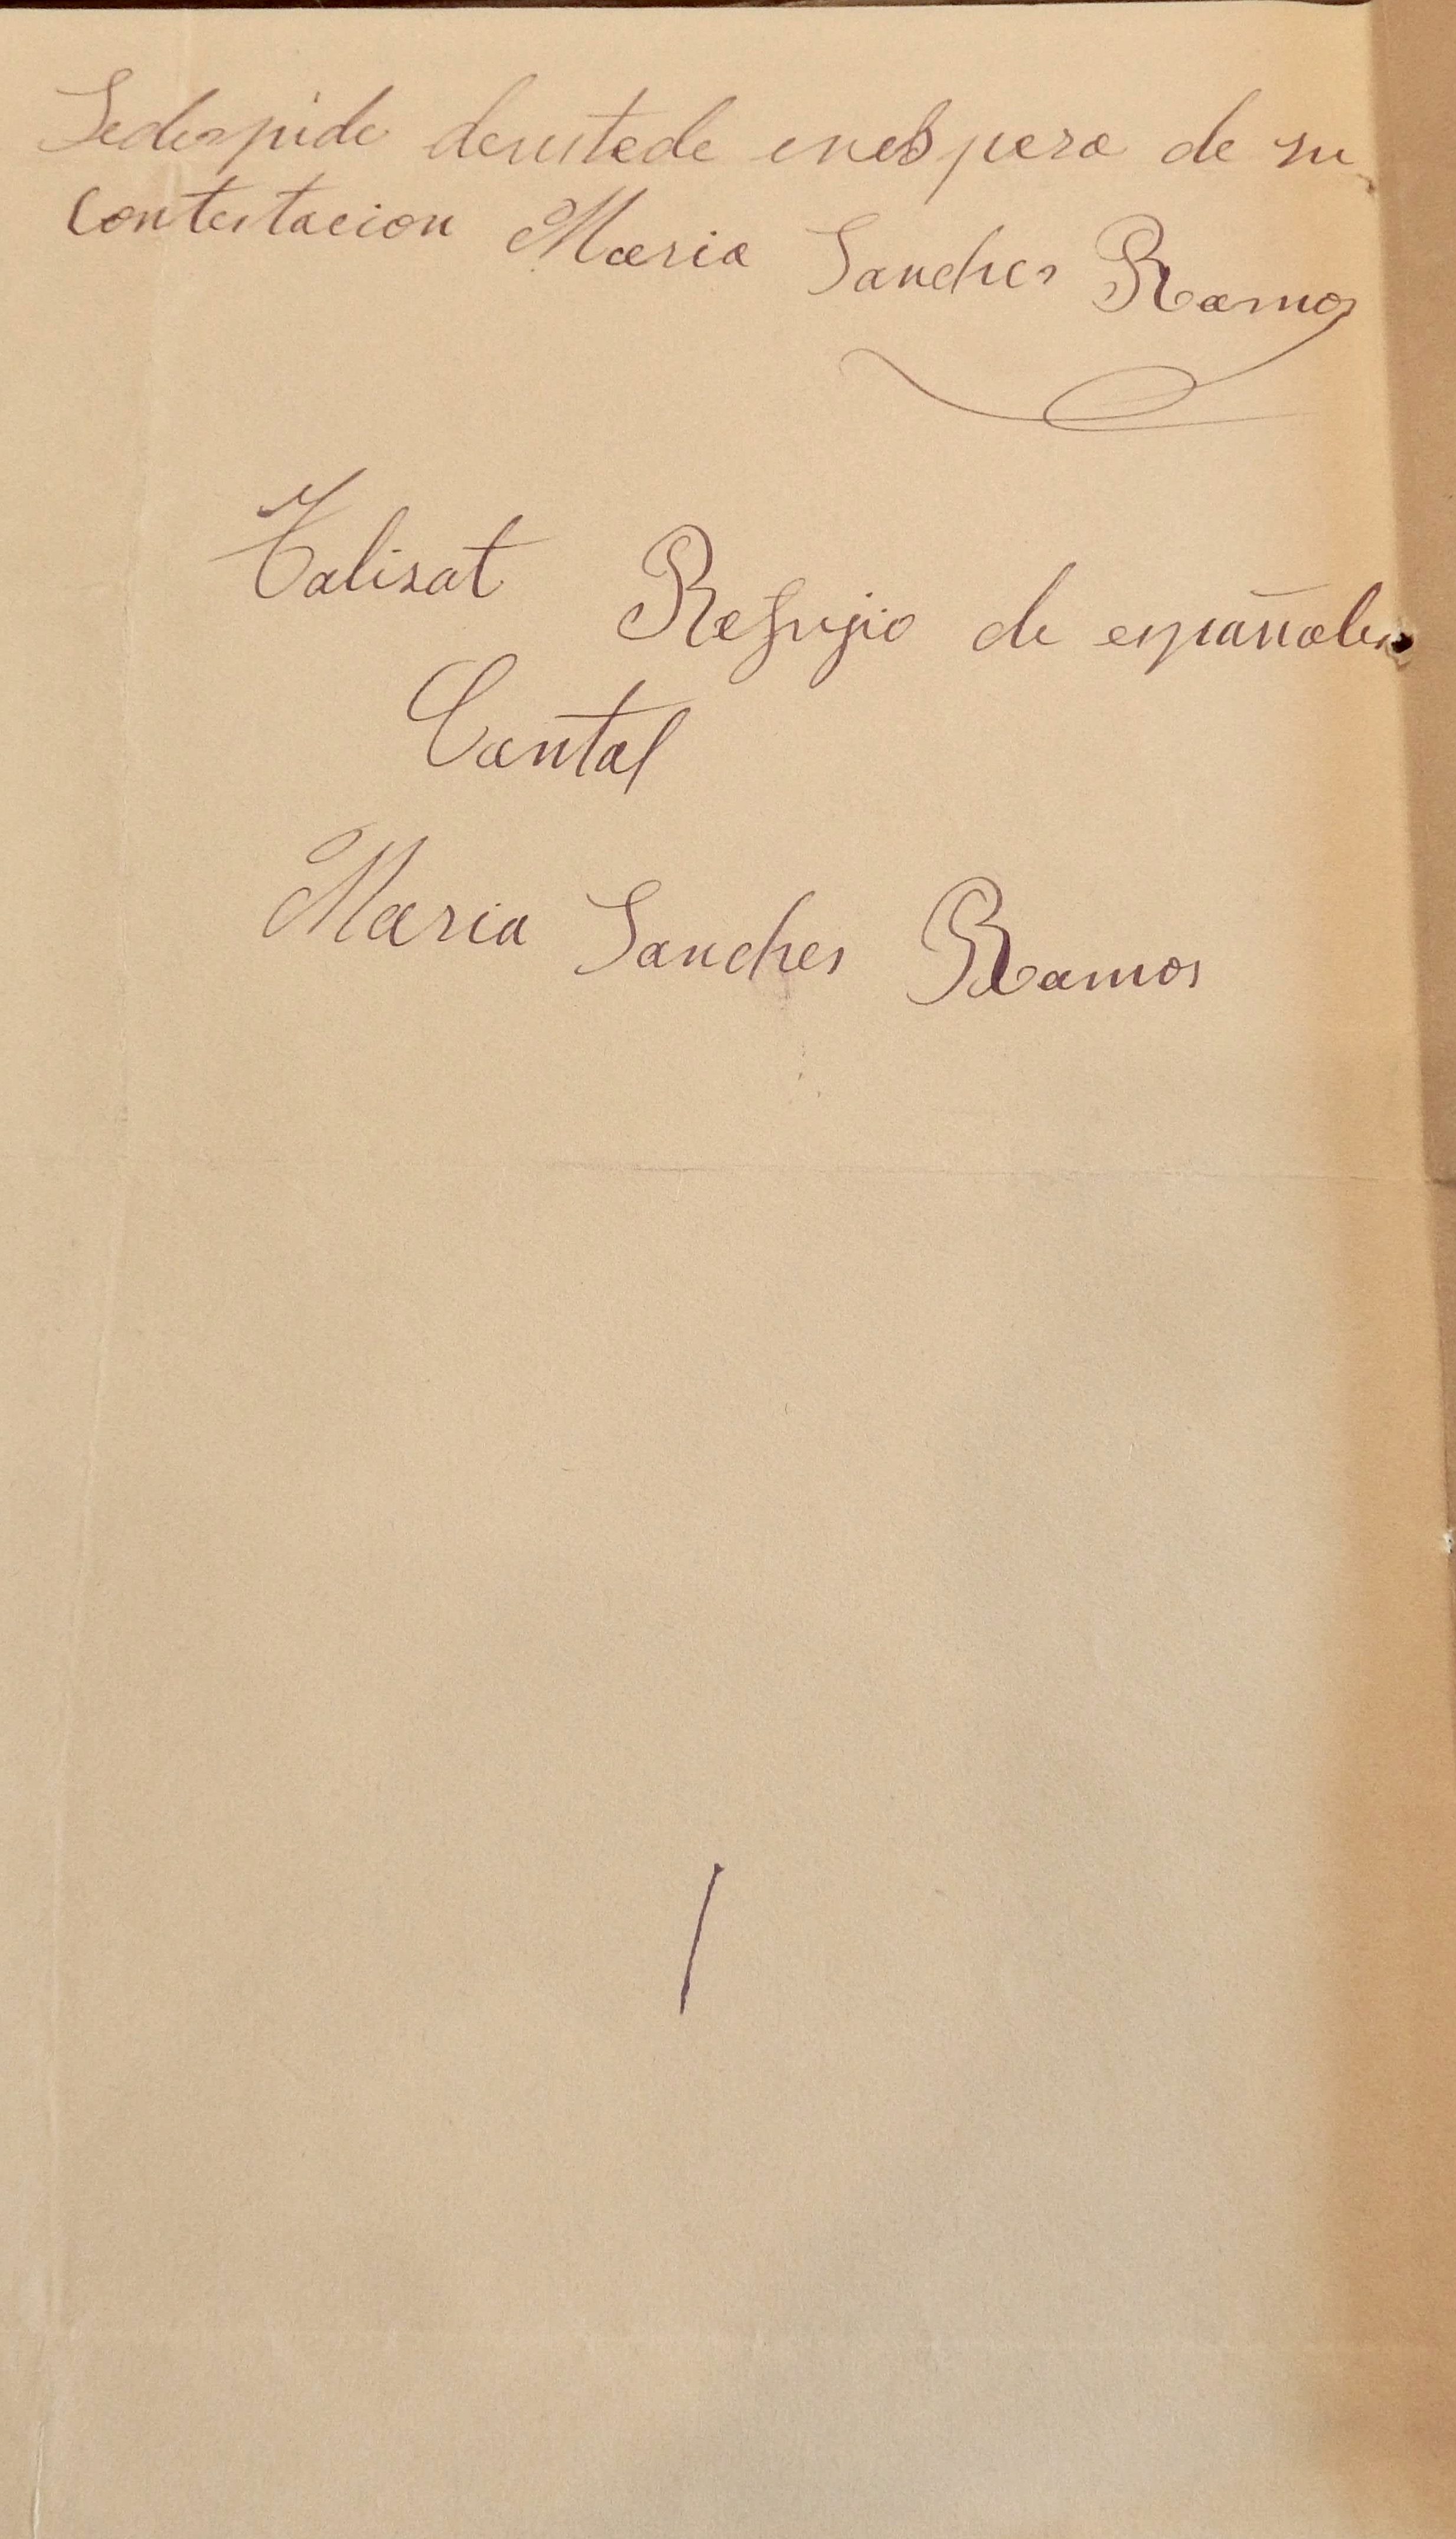 Sedespide deustede enespera de su
Contestacion Maria Sanches Ramos
Talisat Refugio de españoles
Cantal
Maria Sanches Ramos